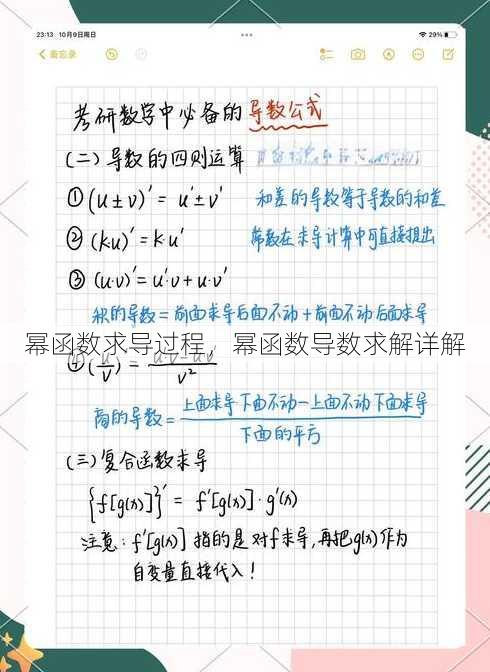 23:13 10月9日周日
29%
备忘录
考研数学中必备的导数公式
(二)导数的四则运算
①(u±v)'= u'±v' 和差的导数等于导数的和差
②(ku)'=k·u' 常数在求导计算中可直接提出
③(u·v)'=u'·v+u·v'
积的导数=前面求导后面不动+前面不动后面求导
幂函数求导过程，幂函数导数求解详解
④(u/v)'= u'v-uv'/v²
商的导数=上面求导下面不动-上面不动下面求导/下面的平方
(三)复合函数求导
{f[g(x)]}'= f'[g(x)]·g'(x)
注意:f'[g(x)]指的是对f求导,再把g(x)作为
自变量直接代入!